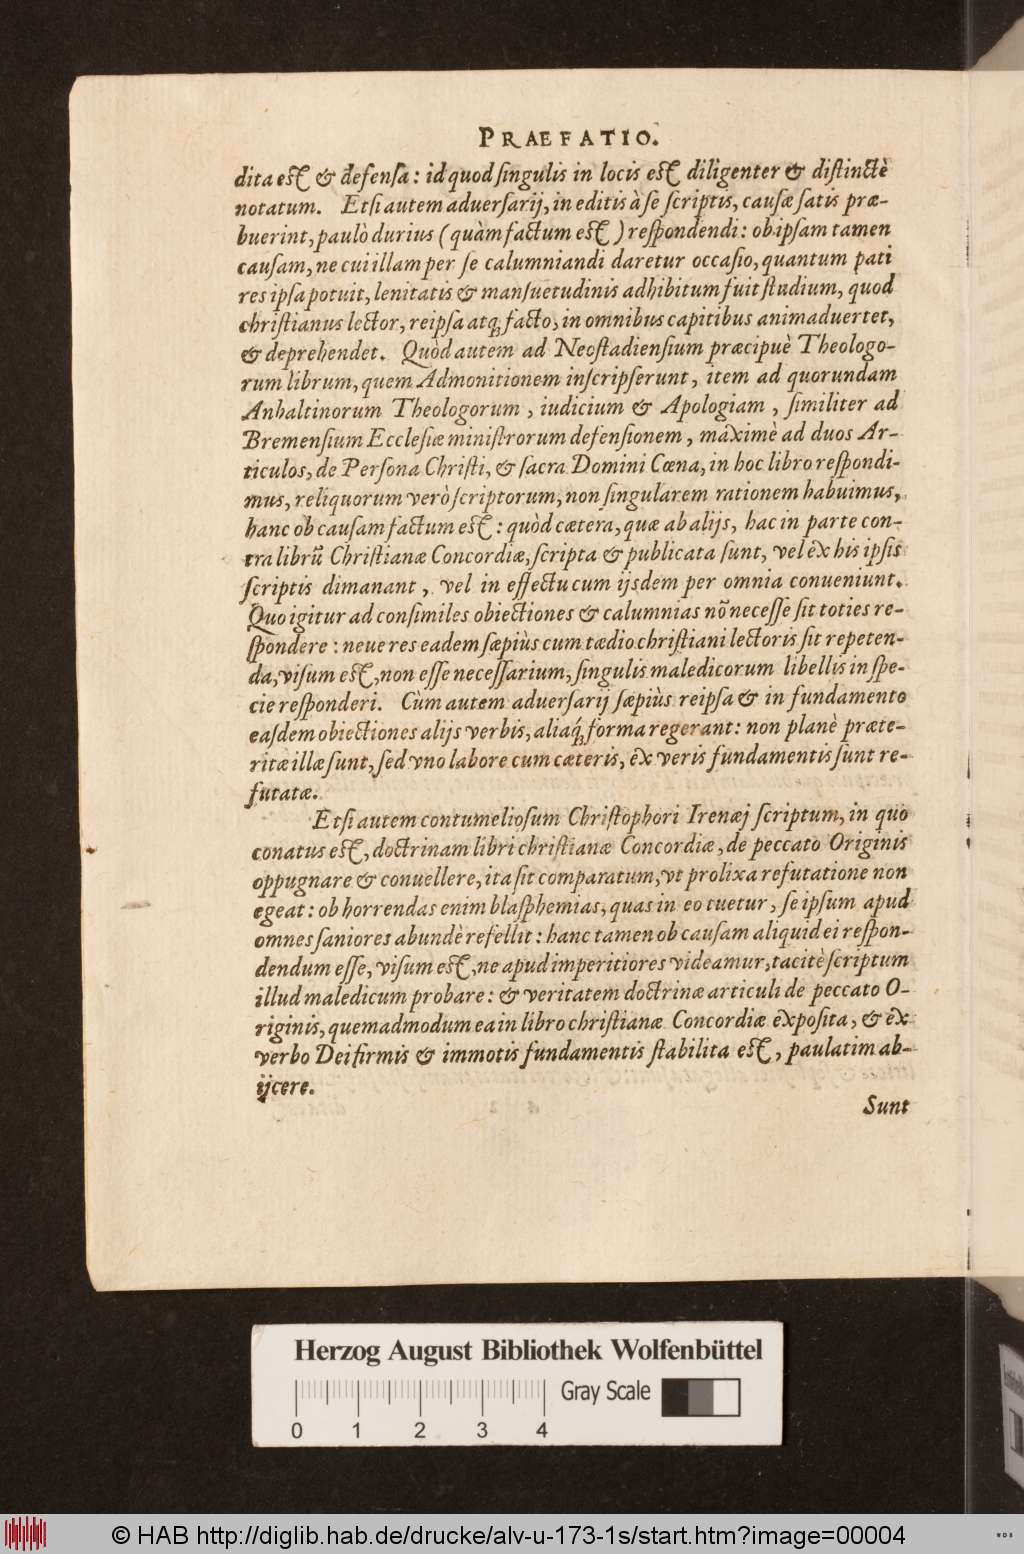 PRAEFATIO.
dita est & defensa: id quod singulis in locis est diligenter & distinctè
notatum. Etsi autem aduersarij, in editis à se scriptis, causæ satis præ-
buerint, paulò durius (quàm factum est) respondendi: ob ipsam tamen
causam, ne cui illam per se calumniandi daretur occasio, quantum pati
res ipsa potuit, lenitatis & mansuetudinis adhibitum fuit studium, quod
christianus lector, reipsa atq; facto, in omnibus capitibus animaduertet,
& deprehendet. Quòd autem ad Neostadiensium præcipuè Theologo-
rum librum, quem Admonitionem inscripserunt, item ad quorundam
Anhaltinorum Theologorum, iudicium & Apologiam, similiter ad
Bremensium Ecclesiæ ministrorum defensionem, máximè ad duos Ar-
ticulos, de Persona Christi, & sacra Domini Cœna, in hoc libro respondi-
mus, reliquorum verò scriptorum, non singularem rationem habuimus,
hanc ob causam factum est: quòd cætera, quæ ab alijs, hac in parte con-
tra librũ Christianæ Concordiæ, scripta & publicata sunt, vel ex his ipsis
scriptis dimanant, vel in effectu cum ijsdem per omnia conueniunt.
Quo igitur ad consimiles obiectiones & calumnias nõ necesse sit toties re-
spondere: neue res eadem sæpiùs cum tædio christiani lectoris sit repeten-
da, visum est, non esse necessarium, singulis maledicorum libellis in spe-
cie responderi. Cùm autem aduersarij sæpiùs reipsa & in fundamento
easdem obiectiones alijs verbis, aliaq́; forma regerant: non planè præte-
ritæ illæ sunt, sed vno labore cum cæteris, ex veris fundamentis sunt re-
futatæ.
Etsi autem contumeliosum Christophori Irenæj scriptum, in quo
conatus est, doctrinam libri christianæ Concordiæ, de peccato Originis
oppugnare & conuellere, ita sit comparatum, vt prolixa refutatione non
egeat: ob horrendas enim blasphemias, quas in eo tuetur, se ipsum apud
omnes saniores abundè refellit: hanc tamen ob causam aliquid ei respon-
dendum esse, visum est, ne apud imperitiores videamur, tacitè scriptum
illud maledicum probare: & veritatem doctrinæ articuli de peccato O-
riginis, quemadmodum ea in libro christianæ Concordiæ exposita, & ex
verbo Dei firmis & immotis fundamentis stabilita est, paulatim ab-
ijcere.
Sunt
Herzog August Bibliothek Wolfenbüttel
Gray Scale
0 1 2 3 4
© HAB http://diglib.hab.de/drucke/alv-u-173-1s/start.htm?image=00004